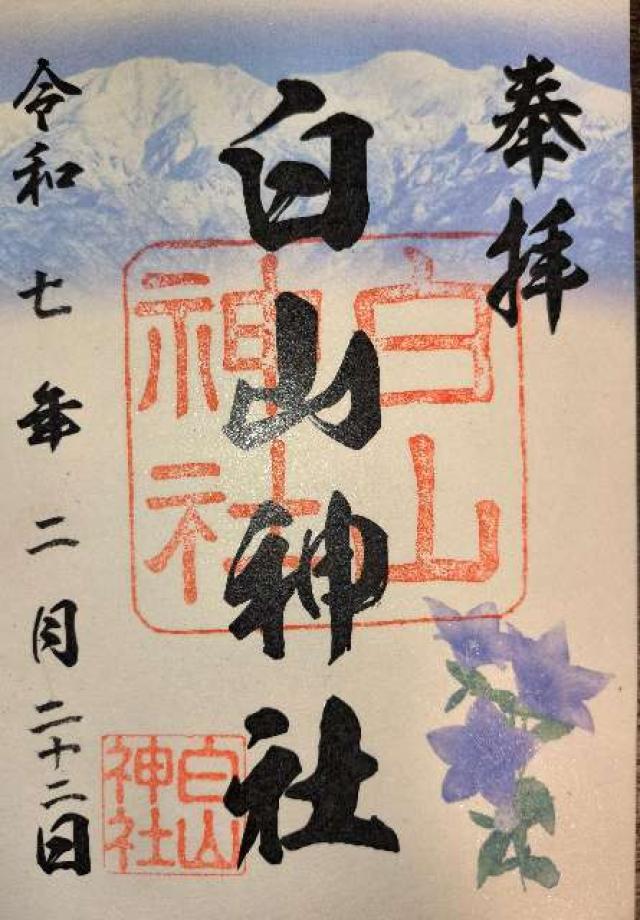 奉拝
白山神社
令和七年二月二十二日
白山神社
白山神社